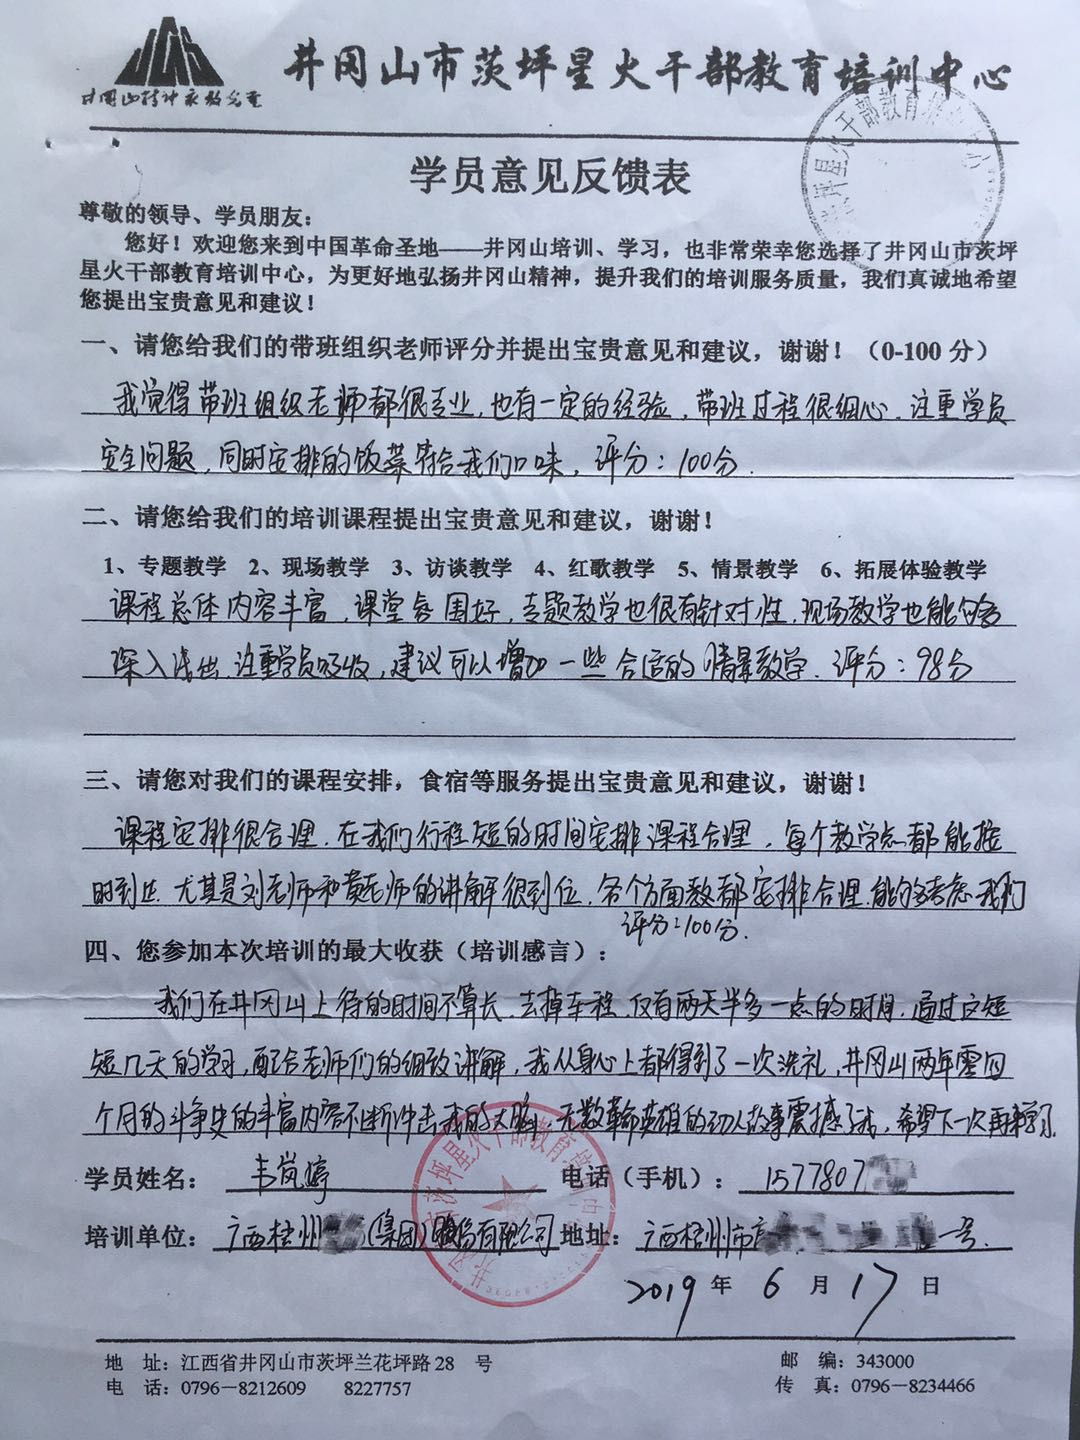 井冈山精神永放光芒
井冈山市茨坪星火干部教育培训中心
学员意见反馈表
尊敬的领导、学员朋友：
您好！欢迎您来到中国革命圣地——井冈山培训、学习，也非常荣幸您选择了井冈山市茨坪
星火干部教育培训中心，为更好地弘扬井冈山精神，提升我们的培训服务质量，我们真诚地希望
您提出宝贵意见和建议！
一、请您给我们的带班组织老师评分并提出宝贵意见和建议，谢谢！（0-100 分）
我觉得带班组织老师都很专业，也有一定的经验，带班过程很细心，注重学员
安全问题，同时安排的饭菜符合我们口味，评分：100分.
二、请您给我们的培训课程提出宝贵意见和建议，谢谢！
1、专题教学 2、现场教学 3、访谈教学 4、红歌教学 5、情景教学 6、拓展体验教学
课程总体内容丰富，课堂氛围好，专题教学也很有针对性，现场教学也能够
深入浅出，注重学员吸收，建议可以增加一些合适的情景教学．评分：98分
三、请您对我们的课程安排，食宿等服务提出宝贵意见和建议，谢谢！
课程安排很合理，在我们行程短的时间安排课程合理，每个教学点都能按
时到达．尤其是刘老师和黄老师的讲解很到位，各个方面教都安排合理，能够考虑我们
评分：100分．
四、您参加本次培训的最大收获（培训感言）：
我们在井冈山上待的时间不算长，去掉车程，仅有两天半多一点的时间，通过这短
短几天的学习，配合老师们的细致讲解，我从身心上都得到了一次洗礼，井冈山两年零四
个月的斗争史的丰富内容不断冲击我的大脑，无数革命英雄的动人故事震撼了我，希望下一次再来学习．
学员姓名： 韦岚婷 电话（手机）： 1577807
培训单位： 广西梧州 (集团)股份有限公司 地址： 广西梧州市 一号．
2019 年 6 月 17 日
地 址：江西省井冈山市茨坪兰花坪路 28 号 邮 编：343000
电 话：0796－8212609 8227757 传 真：0796－8234466